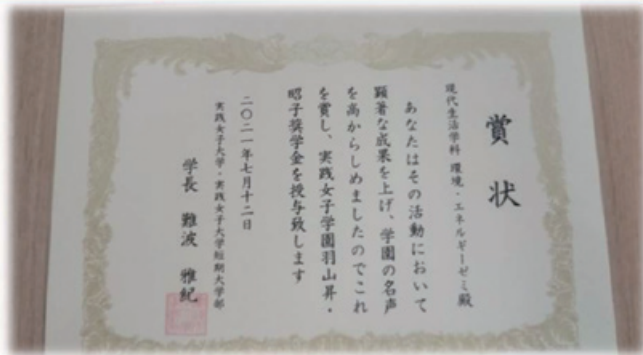 賞状
現代生活学科 環境・エネルギーゼミ殿
あなたはその活動において
顕著な成果を上げ、学園の名声
を高からしめましたのでこれ
を賞し、実践女子学園羽山昇・
昭子奨学金を授与致します
二〇二一年七月十二日
実践女子大学・実践女子大学短期大学部
学長 難波 雅紀